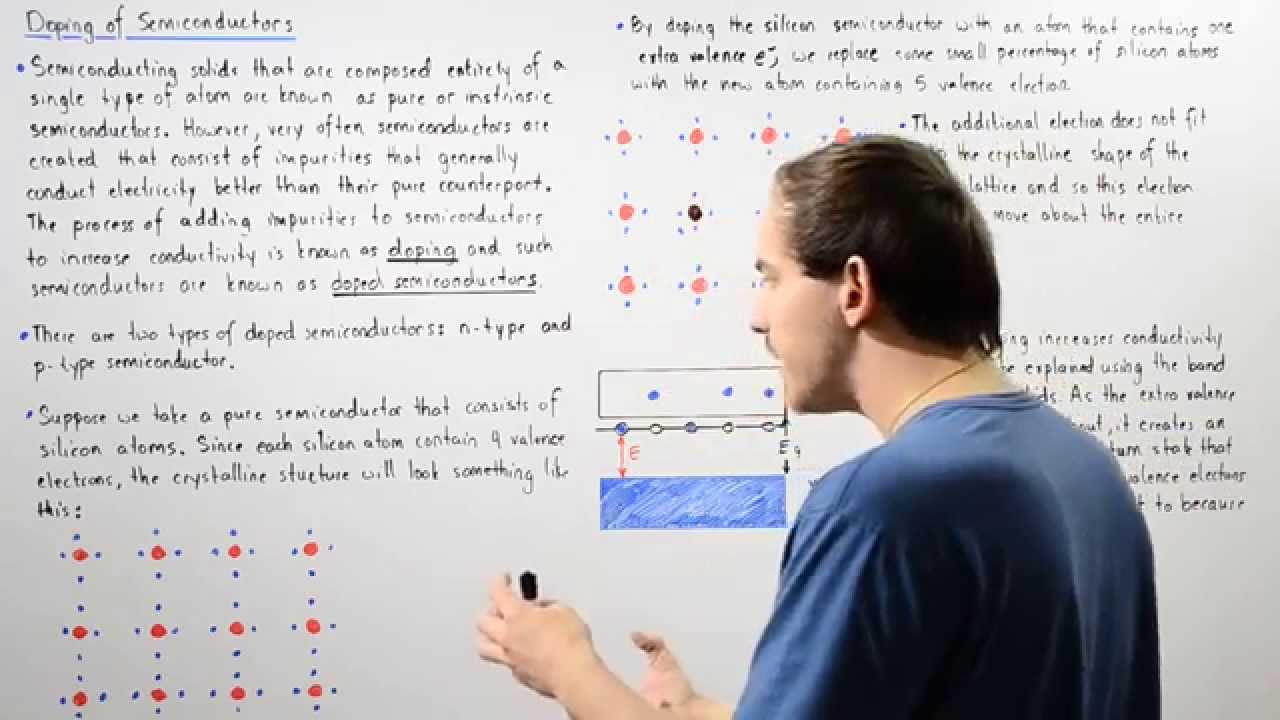 Doping of Semiconductors
• Semiconducting solids that are composed entirely of a
single type of atom are known as pure or instrinsic
semiconductors. However, very often semiconductors are
created that consist of impurities that generally
conduct electricity better than their pure counterport.
The process of adding impurities to semiconductors
to increase conductivity is known as doping and such
semiconductors are known as doped semiconductors.
• There are two types of doped semiconductors: n-type and
p-type semiconductor.
• Suppose we take a pure semiconductor that consists of
silicon atoms. Since each silicon atom contain 4 valence
electrons, the crystalline stucture will look something like
this:
• By doping the silicon semiconductor with an atom that contains one
extra valence e⁻, we replace some small percentage of silicon atoms
with the new atom containing 5 valence electron
• The additional electron does not fit
the crystalline shape of the
lattice and so this electron
move about the entire
increases conductivity
explained using the band
As the extra valence
it creates an
state that
valence electrons
to because
E
Eg